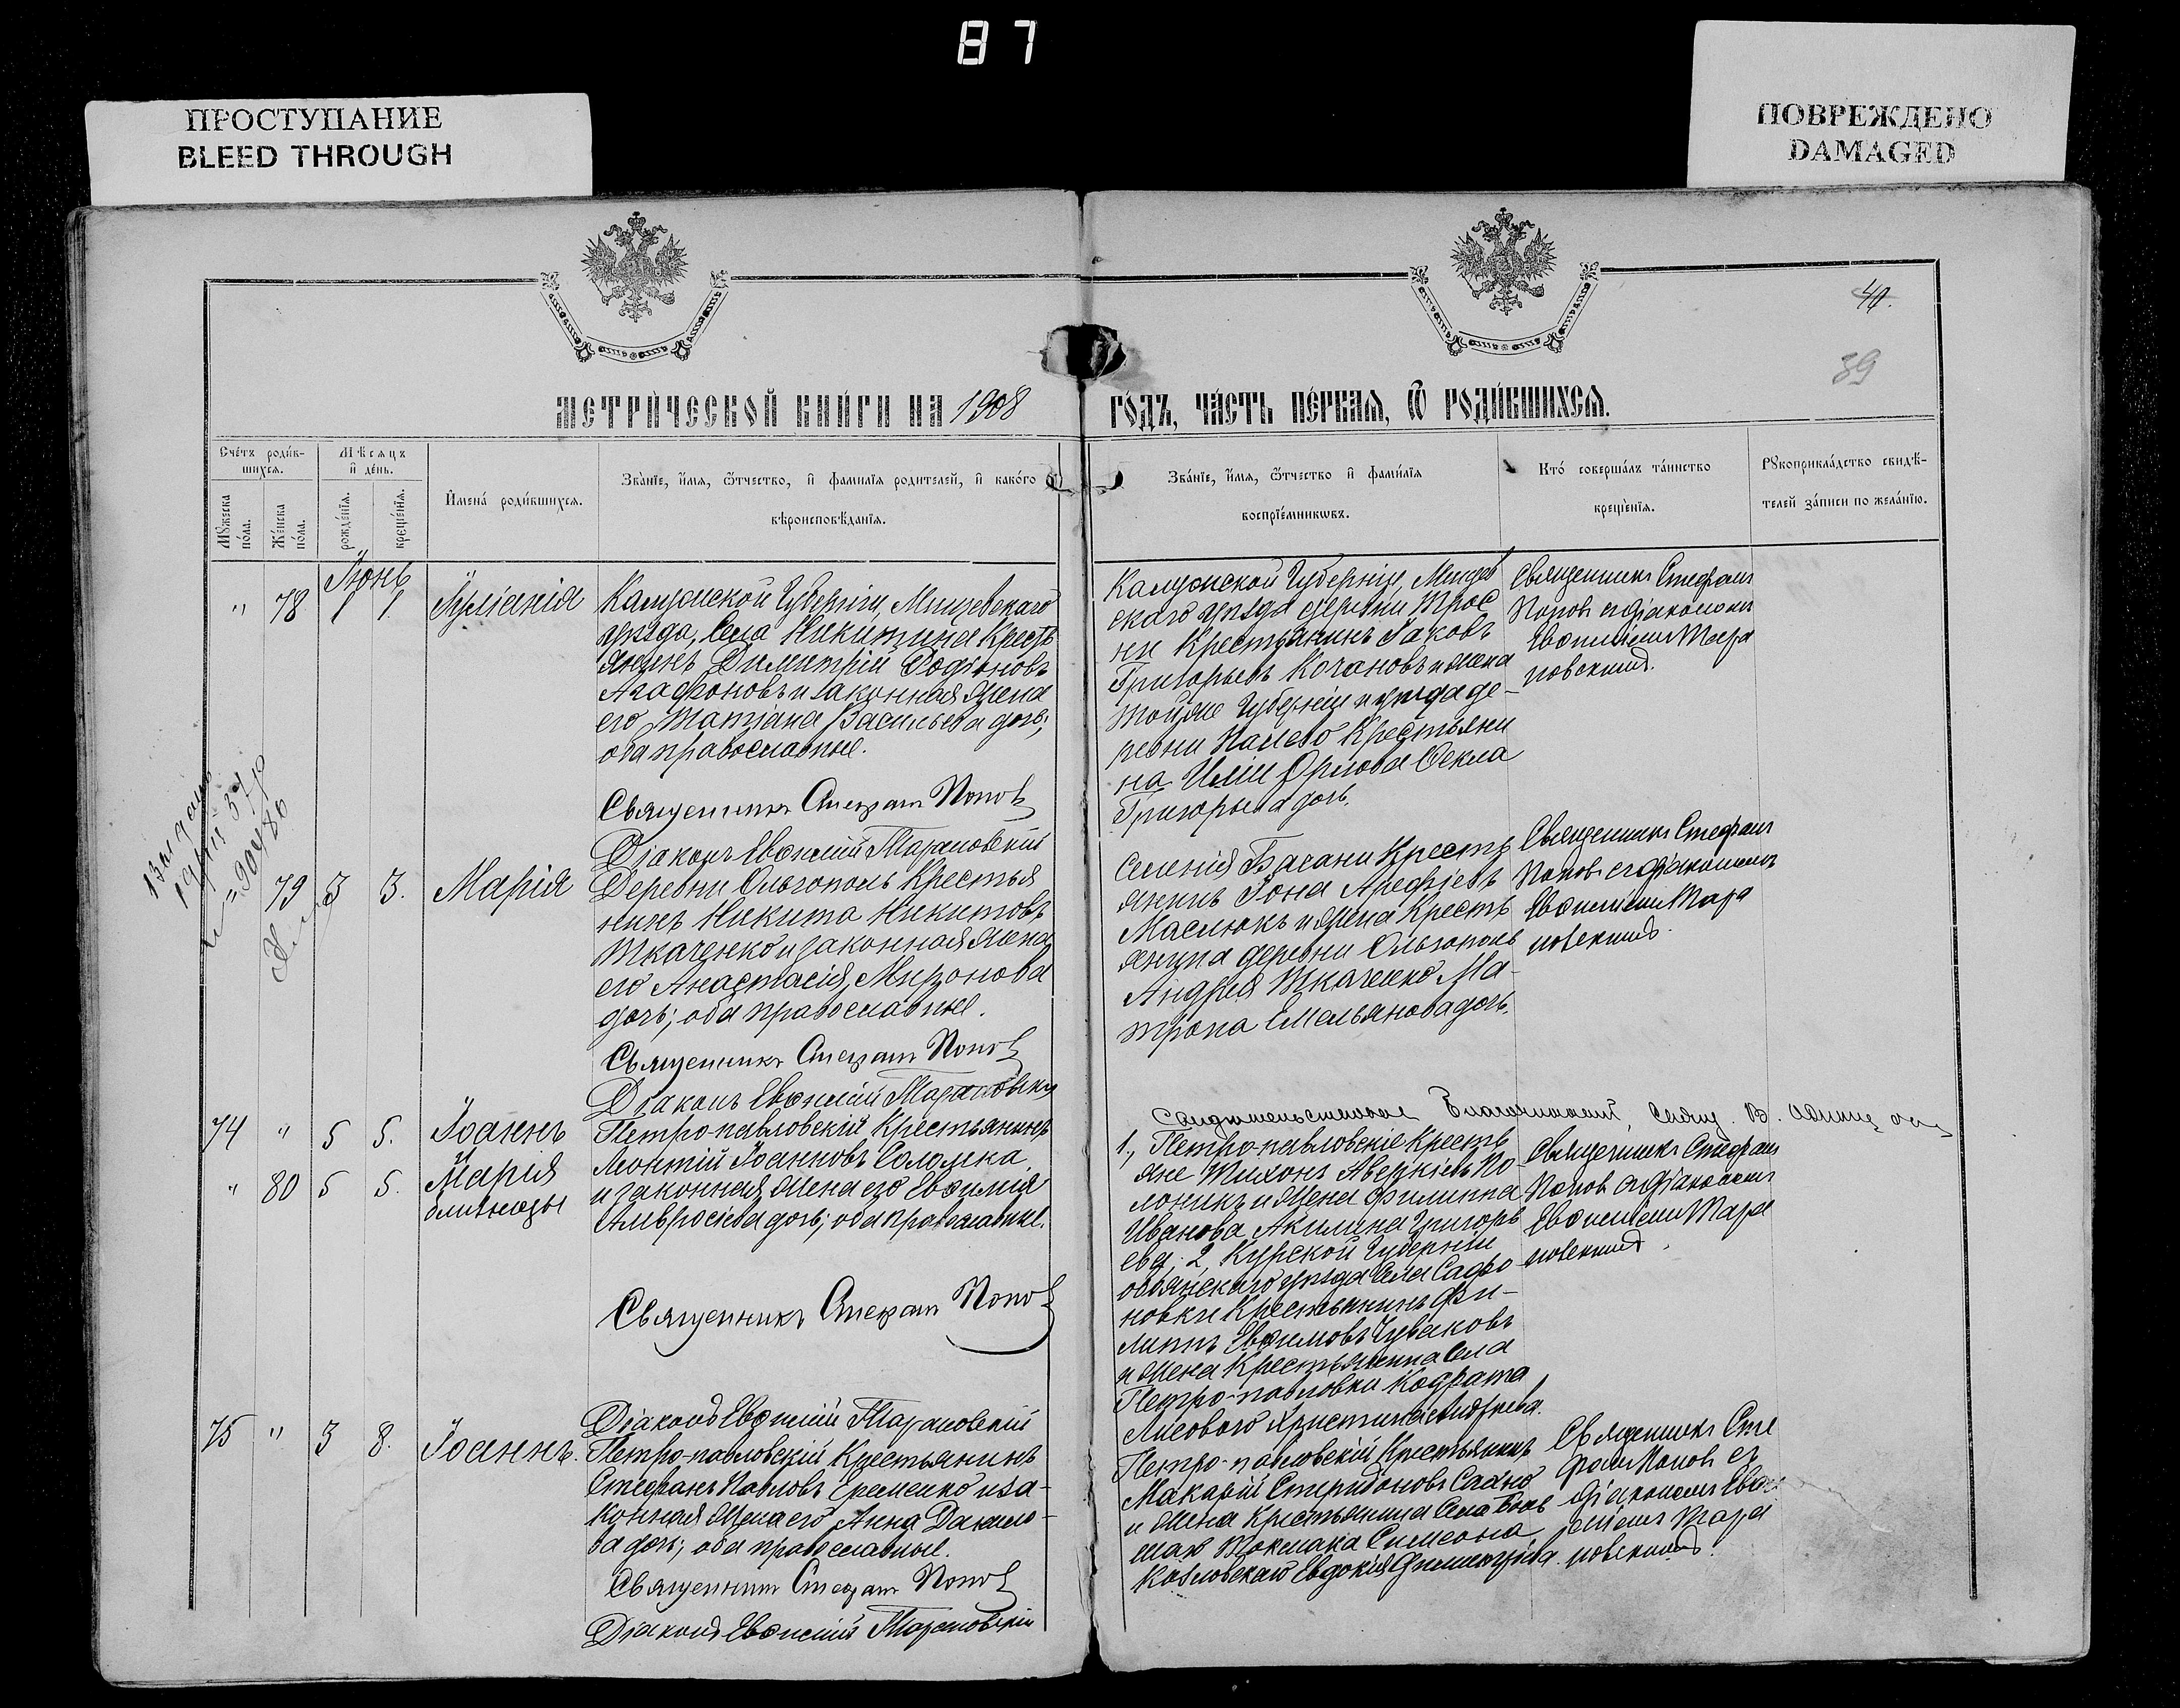 87
ПРОСТУПАНИЕ
BLEED THROUGH
ПОВРЕЖДЕНО
DAMAGED
40.
39
МЕТРИ́ЧЕСКОЙ КНИ́ГИ НА 1908
ГО́ДЪ, ЧА́СТЬ ПЕ́РВАЯ, Ѿ РОДИ́ВШИХСЯ.
Сче́тъ роди́в-
шихся.
Мѣсяцъ
и҆ де́нь.
Мꙋ́жеска
по́ла.
Же́нска
по́ла.
рожде́нїя.
креще́нїя.
И҆мена̀ роди́вшихся.
Зва́нїе, и҆́мя, ѻ҆́тчество, и҆ фами́лїя роди́телей, и҆ како́гѡ
вѣроисповѣ́данїя.
Зва́нїе, и҆́мя, ѻ҆́тчество и҆ фами́лїя
воспрїе́мникѡвъ.
Кто̀ соверша́лъ та́инство
креще́нїя.
Рꙋкоприкла́дство свидѣ́-
телей за́писи по жела́нїю.
Іюнь
" 78 1 1. Іуліанія
Калужской Губерніи, Мещевскаго
уѣзда, Села Никитина Крестъ
янинъ Димитрій Родіоновъ
Агафоновъ и законная жена
его Татіана Васильева дочь;
оба православные.
Священникъ Стефанъ Поповъ
Діаконъ Евѳимій Тарановскій
Калужской Губерніи, Мещев
скаго уѣзда деревни Трос
ни Крестьянинъ Іаковъ
Григорьевъ Кочановъ и жена
тойже Губерніи и уѣзда де-
ревни Палево Крестьяни
на Иліи Орлова Ѳекла
Григорьева дочь.
Священникъ Стефанъ
Поповъ съ діакономъ
Евѳиміемъ Тара
новскимъ.
79 3 3. Марія
Деревни Ольгополь Крестья
нинъ Никита Никитовъ
Ткаченко и законная жена
его Анастасія Миронова
дочь; оба православные.
Священникъ Стефанъ Поповъ
Діаконъ Евѳимій Тарановскій
Селенія Басани Кресть
янинъ Іона Арефіевъ
Маслюкъ и жена Кресть
янина деревни Ольгополь
Андрея Ткаченко Ма-
трона Емельянова дочь.
Священникъ Стефанъ
Поповъ съ діакономъ
Евѳиміемъ Тара
новскимъ.
Благочинный, Свящ. В.
74 " 5 5. Іоаннъ
и
" 80 5 5. Марія
близнецы
Петро-павловскій Крестьянинъ
Леонтій Іоанновъ Соломка
и законная жена его Евѳимія
Амвросіева дочь; оба православные.
Священникъ Стефанъ Поповъ
Діаконъ Евѳимій Тарановскій
1, Петро-павловскіе Кресть
яне Тихонъ Аверкіевъ По
лоникъ и жена Филиппа
Иванова Акилина Григорь
ева; 2, Курской Губерніи
обоянскаго уѣзда Села Сафо
новки Крестьянинъ Фи-
липпъ Евѳимовъ Чуваковъ
и жена Крестьянина Села
Петро-павловки Кодрата
Лисового Христина Андреева.
Священникъ Стефанъ
Поповъ съ діакономъ
Евѳиміемъ Тара
новскимъ.
75 " 3 8. Іоаннъ.
Петро-павловскій Крестьянинъ
Стефанъ Павловъ Еременко и за-
конная жена его Анна Данило-
ва дочь; оба православные.
Священникъ Стефанъ Поповъ
Діаконъ Евѳимій Тарановскій
Петро-павловскій Крестьянинъ
Макарій Спиридоновъ Сахно
и жена Крестьянина Села Боль
шаго Токмака Симеона
Козловскаго Евдокія
Священникъ Сте
фанъ Поповъ съ
діакономъ Евѳи
міемъ Тара
новскимъ.